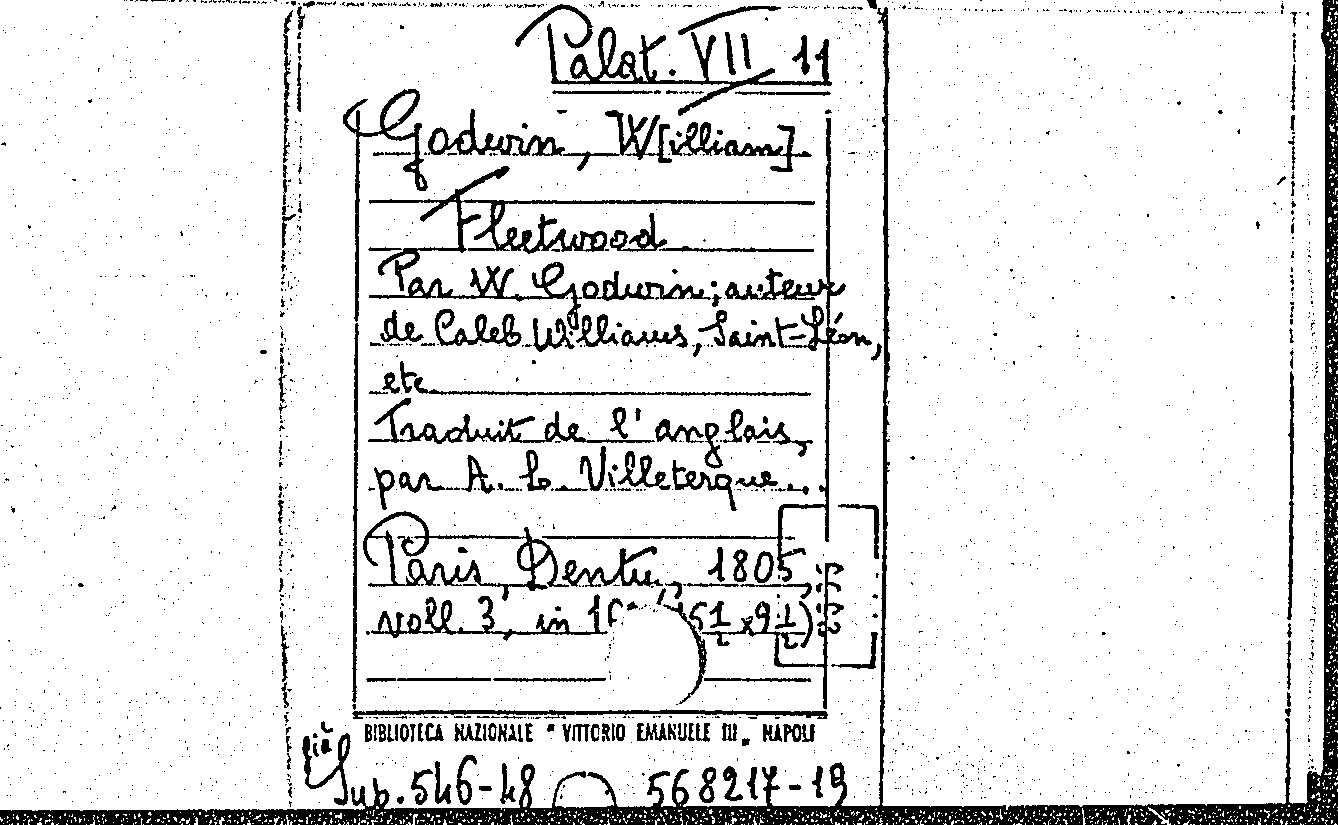 Palat. VII 11
Godwin, W[illiam].
Fleetwood
Par W. Godwin; auteur
de Caleb Williams, Saint-Léon,
etc
Traduit de l'anglais,
par A. L. Villeterque...
Paris, Dentu, 1805,
voll. 3, in 1 51/2 x 9 1/2)
BIBLIOTECA NAZIONALE "VITTORIO EMANUELE III„ NAPOLI
già
Sup. 546-48 568217-19